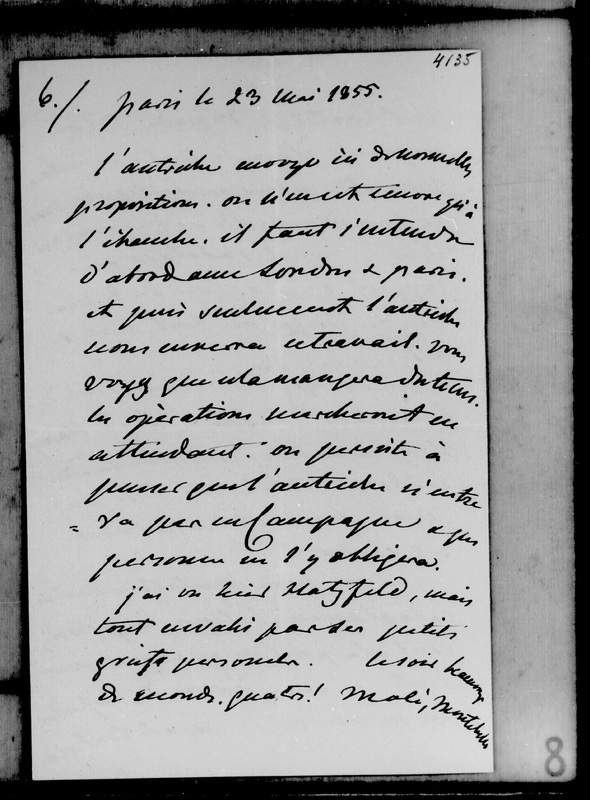 4135
6./. paris le 23 mai 1855.
l'autriche envoye ici de nouvelles
propositions. on n'en est encore qu'à
l'ébauche. il faut s'entendre
d'abord entre Londres & paris.
et puis seulement l'autriche
nous enverra ce travail. vous
voyez que cela mangera du tems.
les opérations marcheront en
attendant. on persiste à
penser que l'autriche n'entre
= ra pas en Campagne & que
personne ne l'y obligera.
j'ai vu hier Hatzfeld, mais
tout envahi par ses petits
griefs personels. le soir beaucoup
de monde. quatre! Molé, Montebello
8